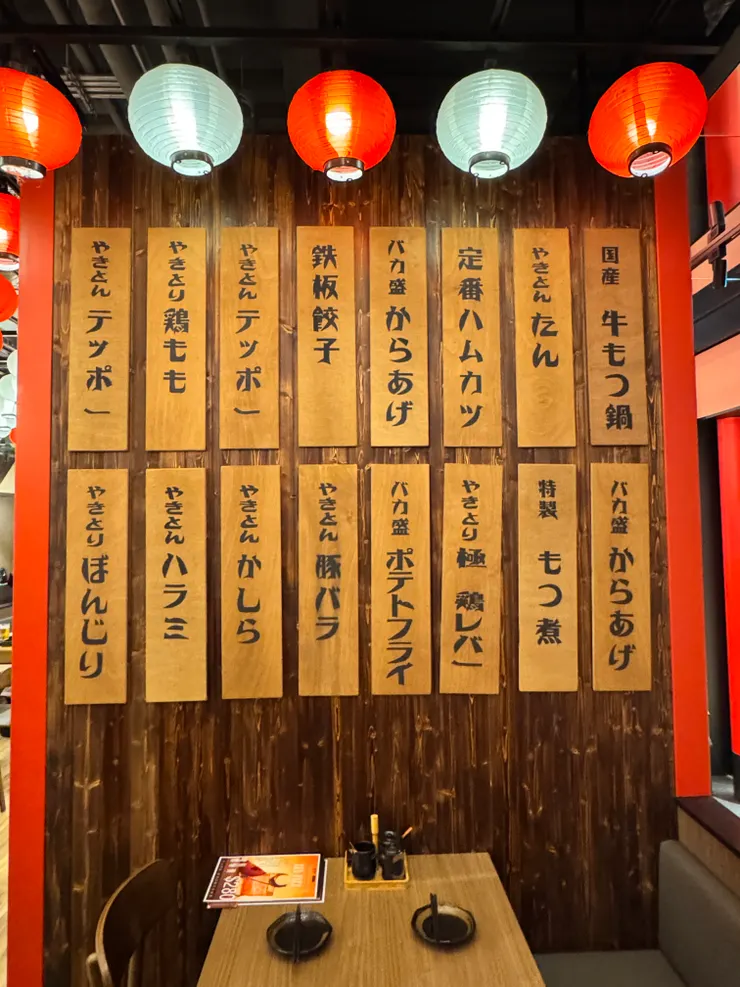 国産 牛もつ鍋
やきとん たん
定番ハムカツ
バカ盛 からあげ
鉄板餃子
やきとん テッポー
やきとり 鶏もも
やきとん テッポー
バカ盛 からあげ
特製 もつ煮
やきとり 極 鶏レバー
バカ盛 ポテトフライ
やきとん 豚バラ
やきとん かしら
やきとん ハラミ
やきとり ぼんじり
$280